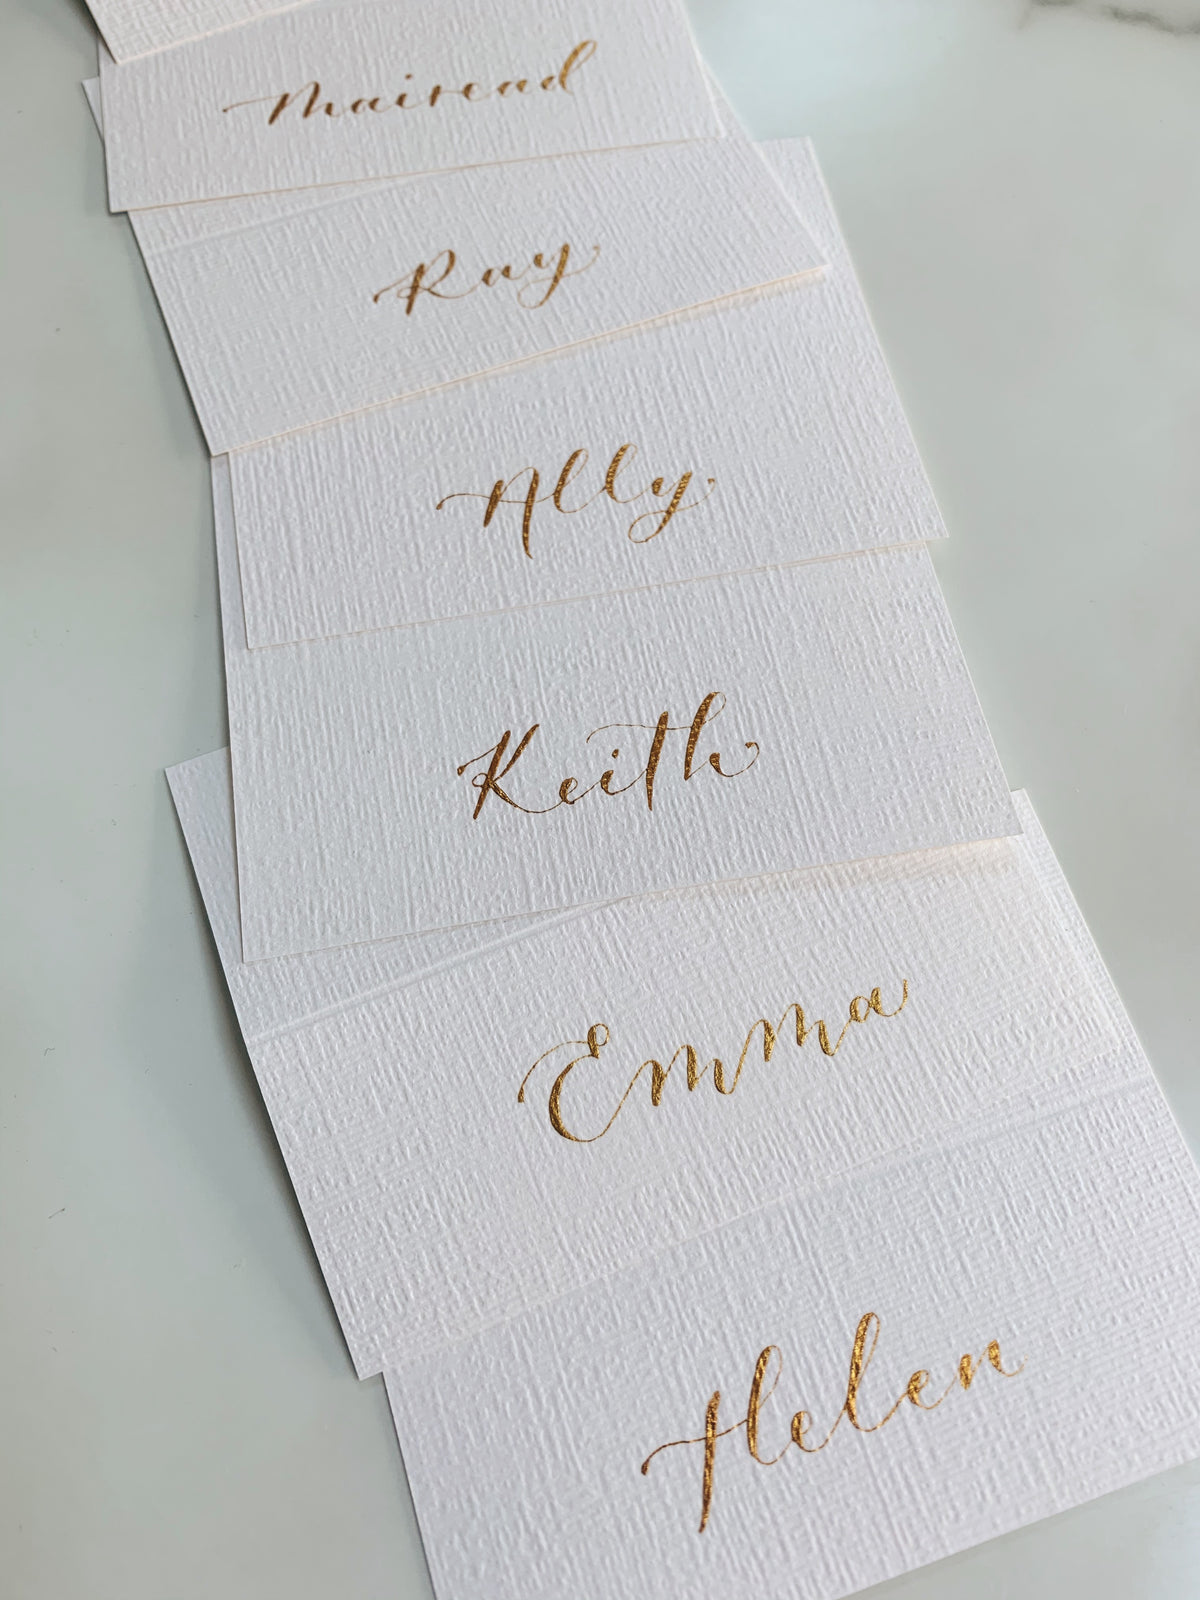 Mairead
Ray
Ally
Keith
Emma
Helen